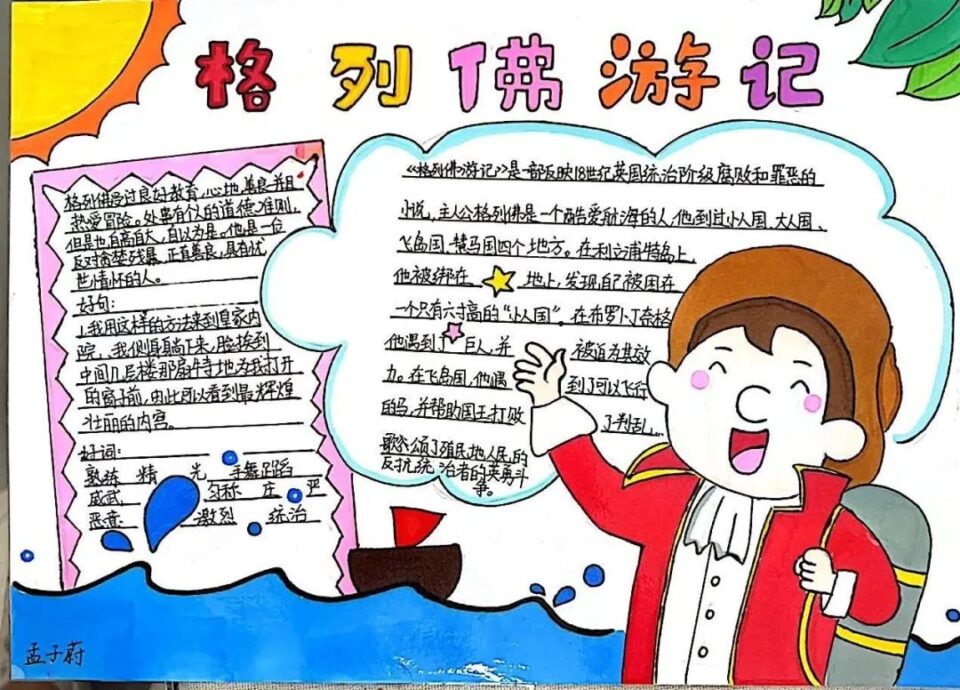 格列佛游记
格列佛受过良好教育,心地善良并且
热爱冒险。处事有个人的道德准则,
但是也自高自大,自以为是。他是一位
反对贪婪残暴、正直善良,具有忧
世情怀的人。
好句:
1.我用这样的方法来到皇家内
院,我侧身躺下来,脸挨到
中间几层楼那扇特地为我打开
的窗子前,由此可以看到最辉煌
壮丽的内宫。
好词:
熟练 精 光 手舞足蹈
威武 匀称 庄 严
恶意 激烈 统治
《格列佛游记》是一部反映18世纪英国统治阶级腐败和罪恶的
小说,主人公格列佛是一个酷爱航海的人,他到过小人国、大人国、
飞岛国、慧马国四个地方。在利立浦特岛上,
他被绑在 地上,发现自己被困在
一个只有六寸高的“小人国”。在布罗卜丁奈格
他遇到了巨人,并 被迫为其效
力。在飞岛国,他遇 到了可以飞行
的马,并帮助国王打败 了判乱...
歌颂了殖民地人民的
反抗统治者的英勇斗
争。
孟子蔚